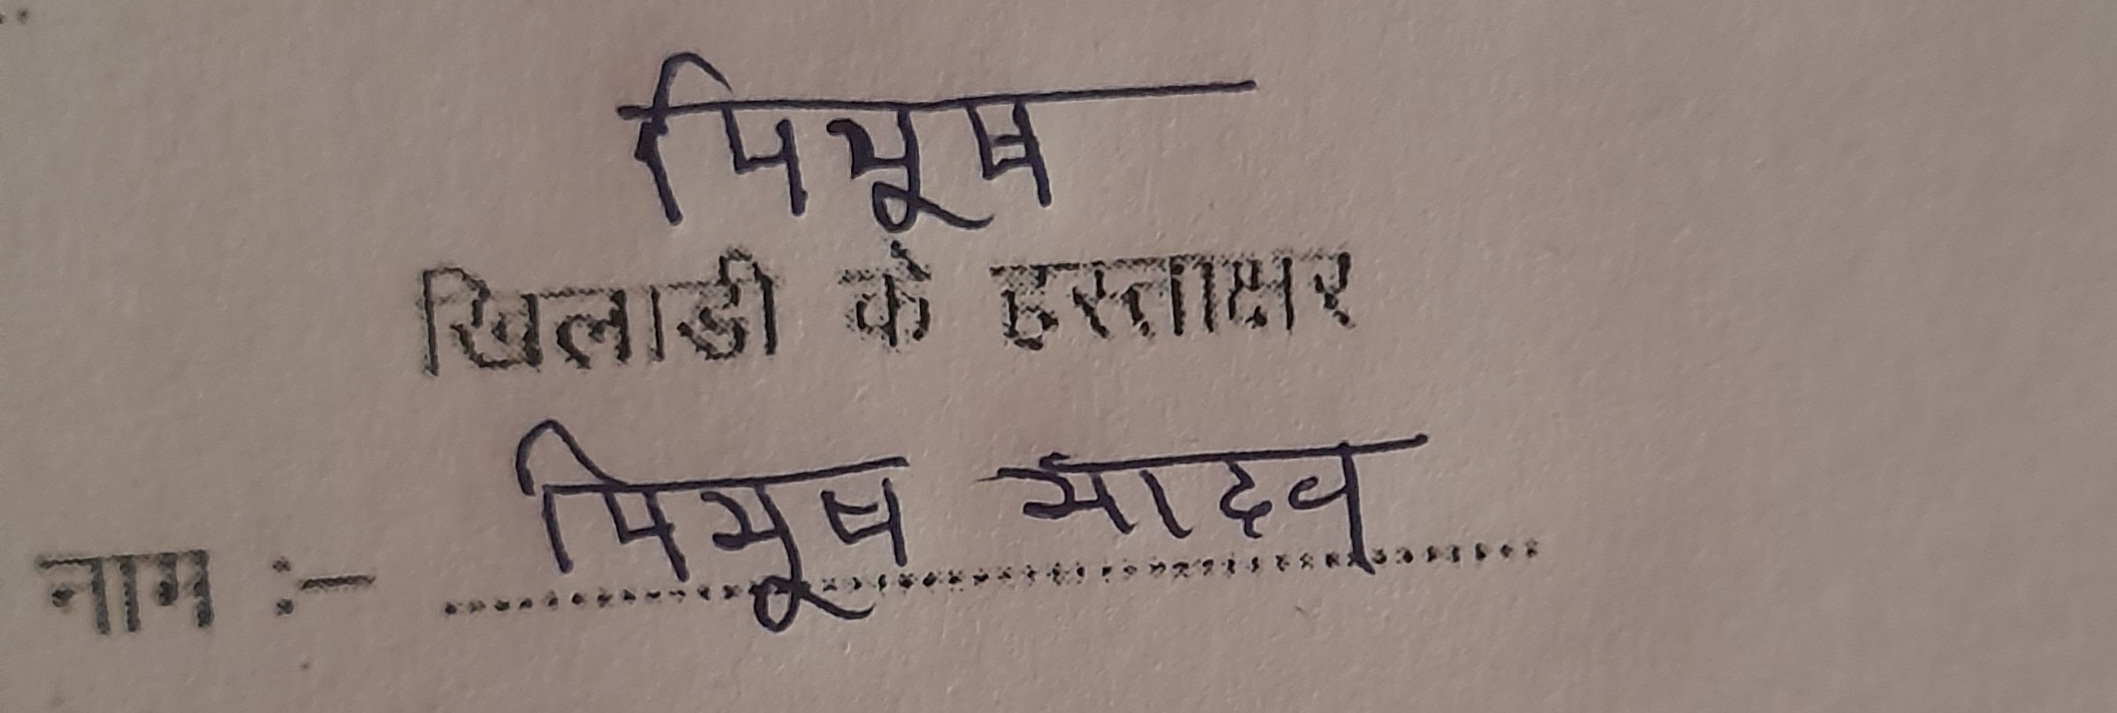 पियूष
खिलाडी के हस्ताक्षर
पियूष यादव
नाम :– ....................